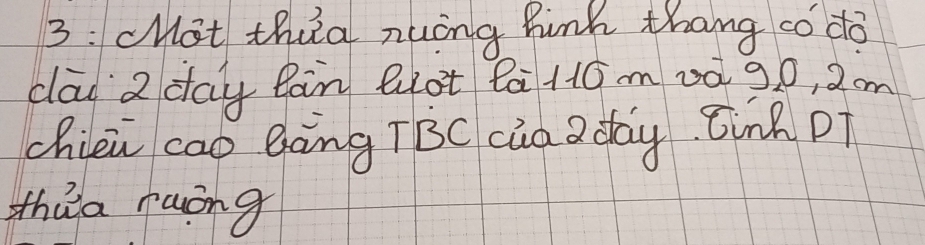 3: Một thửa ruộng hình thang có độ
dài 2 đáy lần lượt là 110 m và 90,2 m
chiều cao bằng TBC của 2 đáy. Tính DT
thửa ruộng